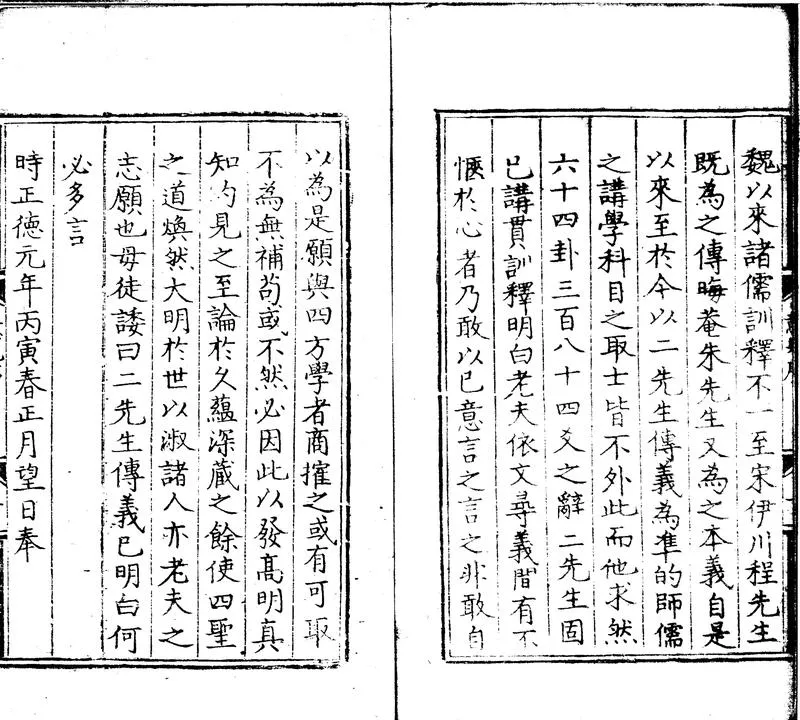 魏以來諸儒訓釋不一至宋伊川程先生
既為之傳晦菴朱先生又為之本義自是
以來至於今以二先生傳義為準的師儒
之講學科目之取士皆不外此而他求然
六十四卦三百八十四爻之辭二先生固
已講貫訓釋明白老夫依文尋義間有不
愜於心者乃敢以已意言之言之非敢自
以為是願與四方學者商搉之或有可取
不為無補茍或不然必因此以發髙明真
知灼見之至論於久蘊深蔵之餘使四聖
之道煥然大明於世以淑諸人亦老夫之
志願也毋徒諉曰二先生傳義已明白何
必多言
時正德元年丙寅春正月望日奉